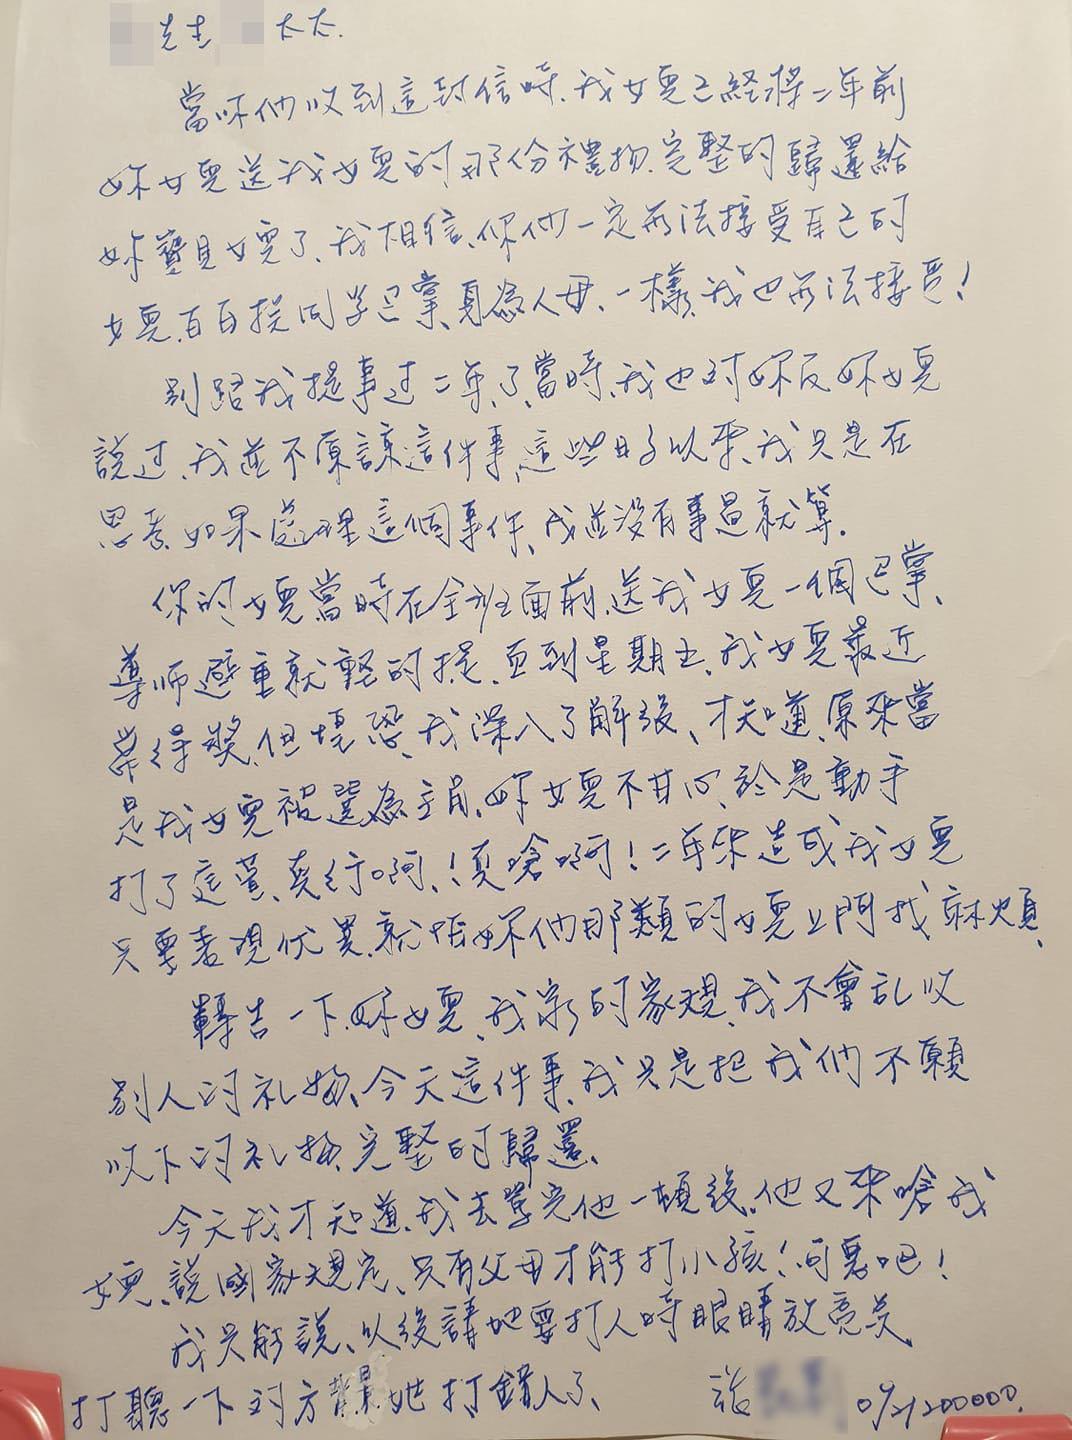 先生 太太.
當你他收到這封信時、我女兒已経將二年前
妳女兒送我女兒的那份禮物、完整的歸還給
妳寶貝女兒了、我相信、你他一定無法接受自己的
女兒、白白挨同学巴掌、身為人母、一樣、我也無法接受!
別跟我提事过二年了、當時、我也对妳及妳女兒
說过、我並不原諒這件事、這些日子以來、我只是在
思考、如果處理這個事件、我並沒有事過就算.
你的女兒當時在全班面前、送我女兒一個巴掌、
導師避重就輕的提、直到星期五、我女兒最近
常得獎、但惶恐、我深入了解後、才知道、原來當
是我女兒被選為主角、妳女兒不甘心、於是動手
打了這掌、真行啊、!真嗆啊!二年來造成我女兒
只要表現优異、就怕妳他那類的女兒上門找麻煩、
轉告一下、妳女兒、我家的家規、我不會乱收
別人的礼物、今天這件事、我只是把我們不願
收下的礼物、完整的歸還、
今天我才知道、我去掌完他一頓後、他又來嗆我
女兒、說國家規定、只有父母才能打小孩!可惡吧!
我只能說、以後請她要打人時眼睛放亮点
打聽一下对方背景、她打錯人了、